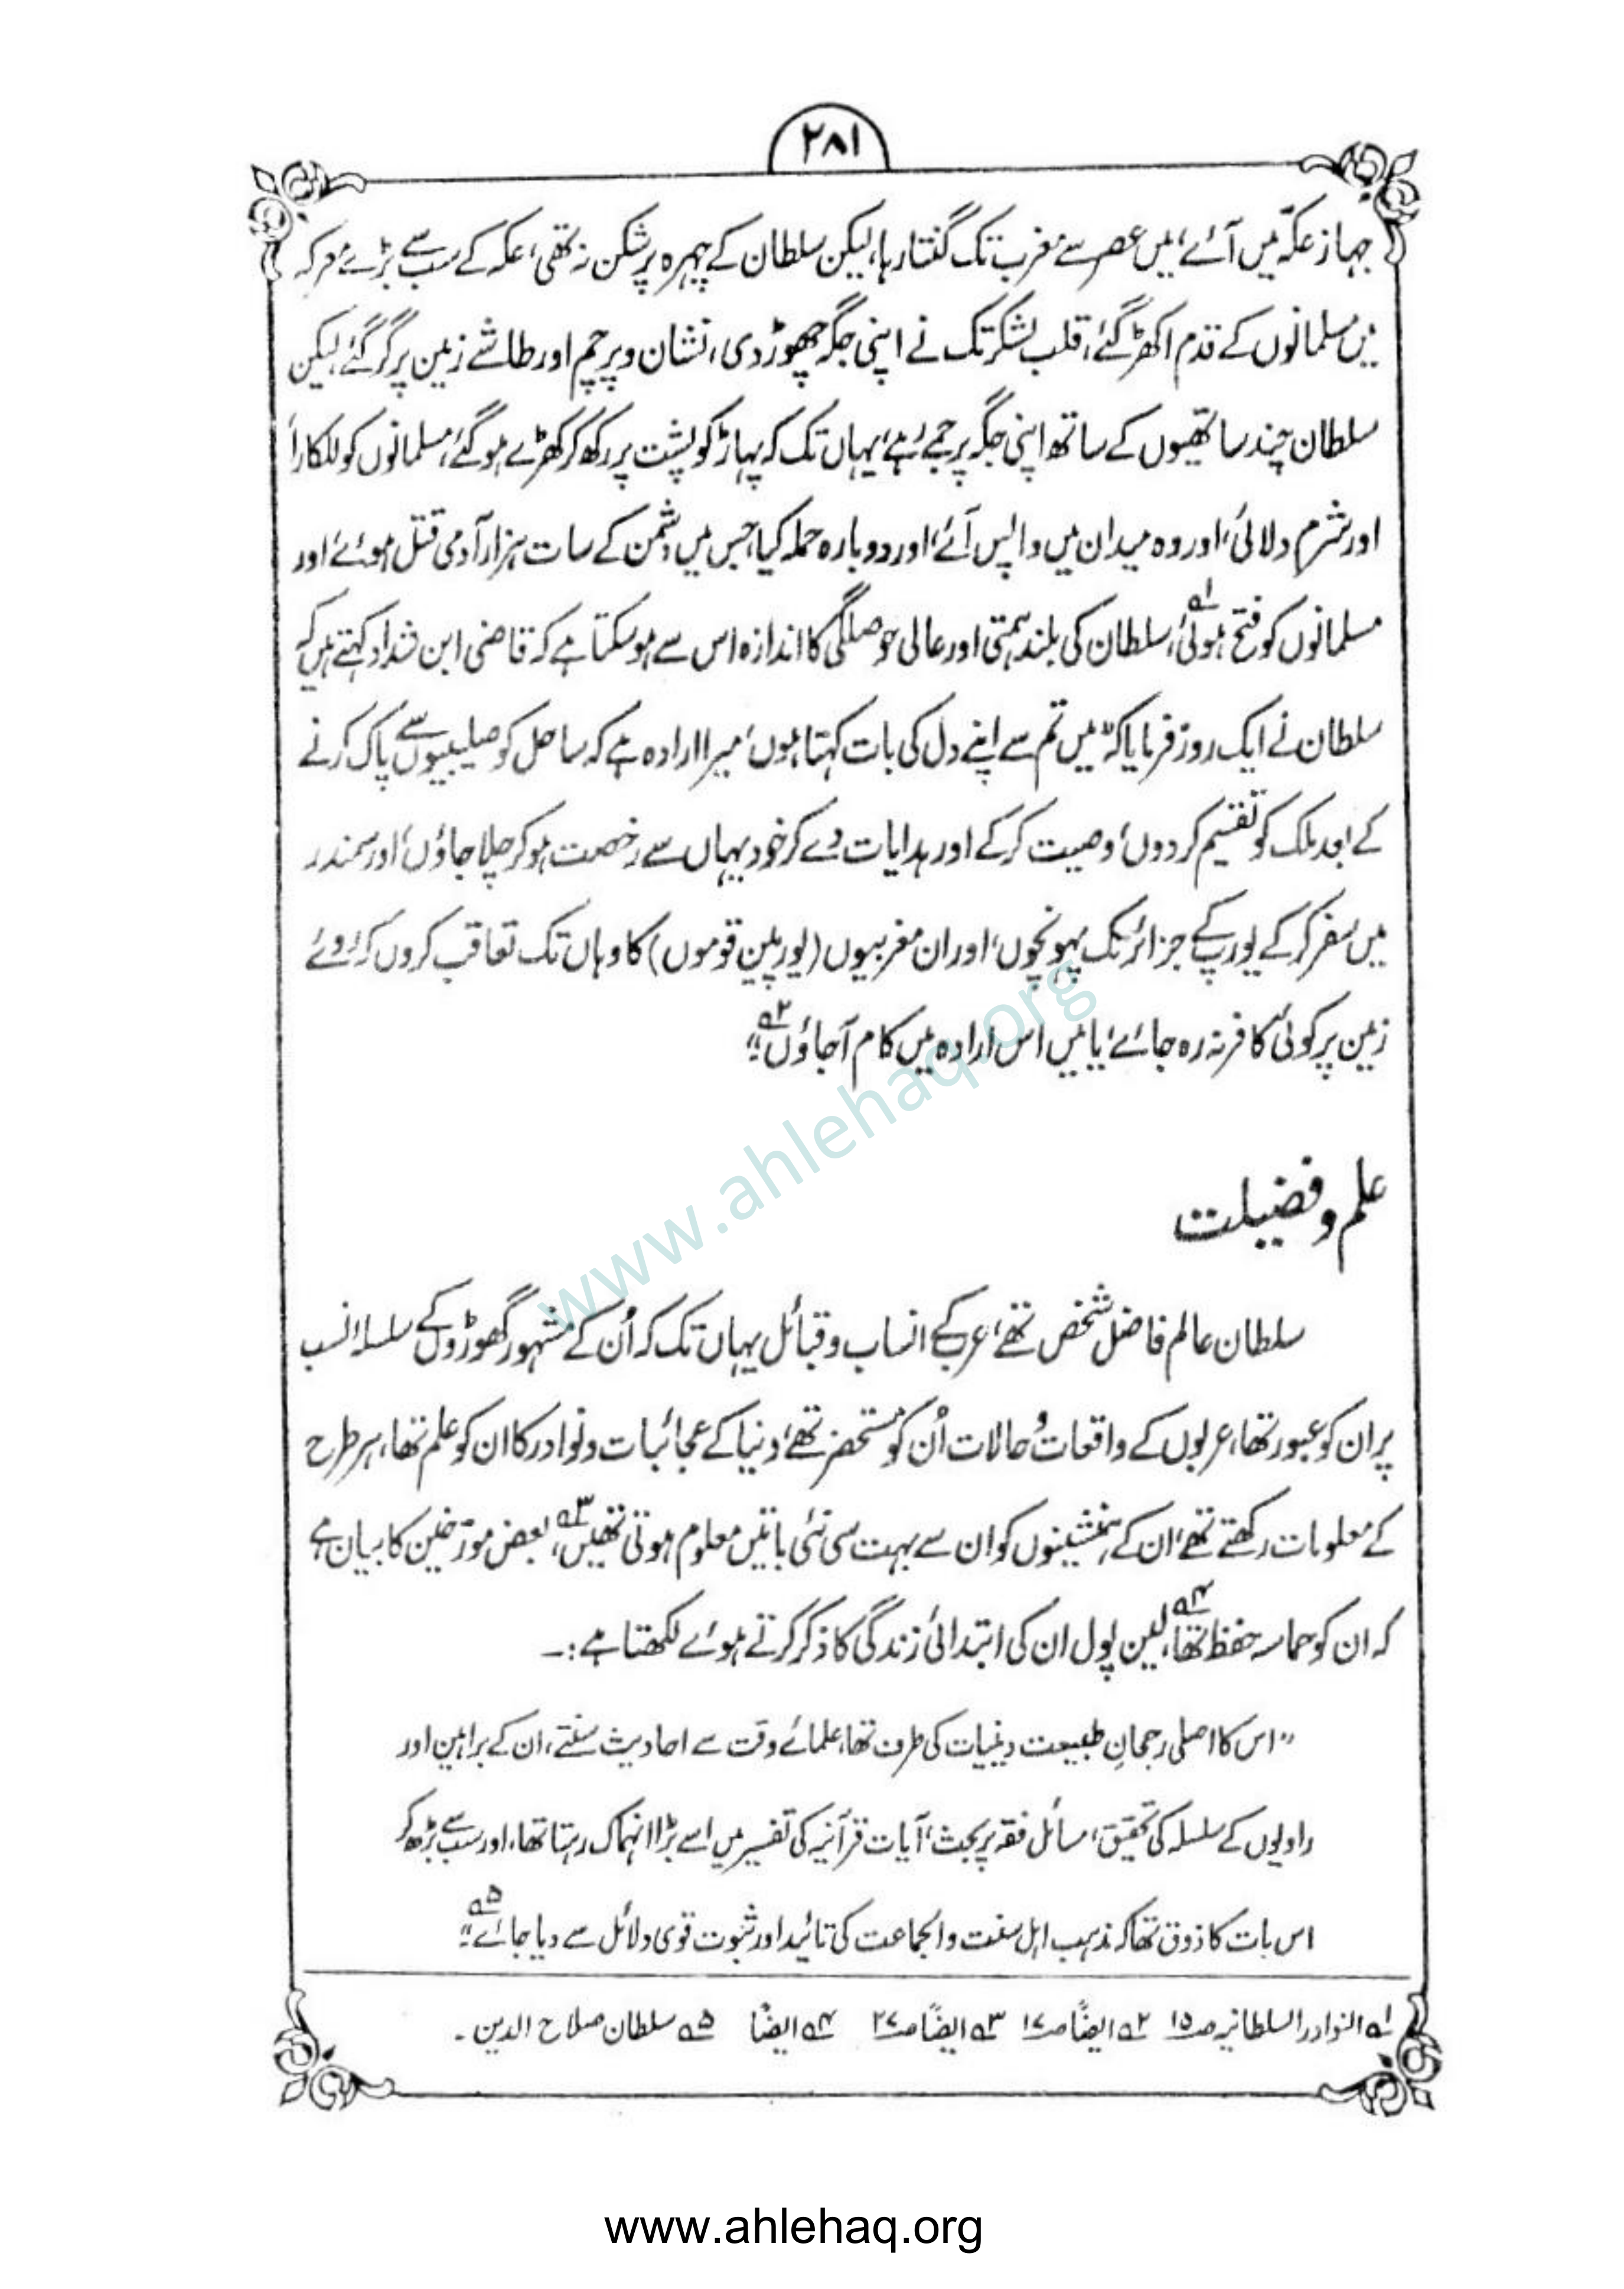 ۲۸۱
جہاز عکّہ میں آئے، میں عصر سے مغرب تک گنتا رہا، لیکن سلطان کے چہرہ پر شکن نہ تھی، عکہ کے سب سے بڑے معرکہ
میں مسلمانوں کے قدم اکھڑ گئے، قلب لشکر تک نے اپنی جگہ چھوڑ دی، نشان و پرچم اور طاشے زمین پر گر گئے، لیکن
سلطان چند ساتھیوں کے ساتھ اپنی جگہ پر جمے رہے، یہاں تک کہ پہاڑ کو پشت پر رکھ کر کھڑے ہو گئے، مسلمانوں کو للکارا
اور شرم دلائی، اور وہ میدان میں واپس آئے، اور دوبارہ حملہ کیا، جس میں دشمن کے سات ہزار آدمی قتل ہوئے، اور
مسلمانوں کو فتح ہوئی؂۱، سلطان کی بلند ہمتی اور عالی حوصلگی کا اندازہ اس سے ہو سکتا ہے کہ قاضی ابن شداد کہتے ہیں کہ
سلطان نے ایک روز فرمایا کہ "میں تم سے اپنے دل کی بات کہتا ہوں، میرا ارادہ ہے کہ ساحل کو صلیبیوں سے پاک کرنے
کے بعد ملک کو تقسیم کر دوں، وصیت کر کے اور ہدایات دے کر خود یہاں سے رخصت ہو کر چلا جاؤں، اور سمندر
میں سفر کر کے یورپ کے جزائر تک پہونچوں، اور ان مغربیوں (یورپین قوموں) کا وہاں تک تعاقب کروں کہ روئے
زمین پر کوئی کافر نہ رہ جائے، یا میں اس ارادہ میں کام آجاؤں"؂۲
علم و فضیلت
سلطان عالم فاضل شخص تھے، عرب کے انساب و قبائل یہاں تک کہ اُن کے مشہور گھوڑوں کے سلسلۂ نسب
پر ان کو عبور تھا، عربوں کے واقعات و حالات اُن کو مستحضر تھے، دنیا کے عجائبات و نوادر کا ان کو علم تھا، ہر طرح
کے معلومات رکھتے تھے، ان کے ہمنشینوں کو ان سے بہت سی نئی باتیں معلوم ہوتی تھیں؂۳، بعض مورّخین کا بیان ہے
کہ ان کو حماسہ حفظ تھا؂۴، لین پول ان کی ابتدائی زندگی کا ذکر کرتے ہوئے لکھتا ہے:۔
"اس کا اصلی رجحانِ طبیعت دینیات کی طرف تھا، علمائے وقت سے احادیث سننے، ان کے براہین اور
راویوں کے سلسلہ کی تحقیق، مسائل فقہ پر بحث، آیات قرآنیہ کی تفسیر میں اسے بڑا انہماک رہتا تھا، اور سب سے بڑھ کر
اس بات کا ذوق تھا کہ مذہب اہل سنت والجماعت کی تائید اور ثبوت قوی دلائل سے دیا جائے"؂۵
؂۱ النوادر السلطانیہ ص۱۵ ؂۲ ایضًا ص۱۷ ؂۳ ایضًا ص۲۷ ؂۴ ایضًا ؂۵ سلطان صلاح الدین۔
www.ahlehaq.org
www.ahlehaq.org